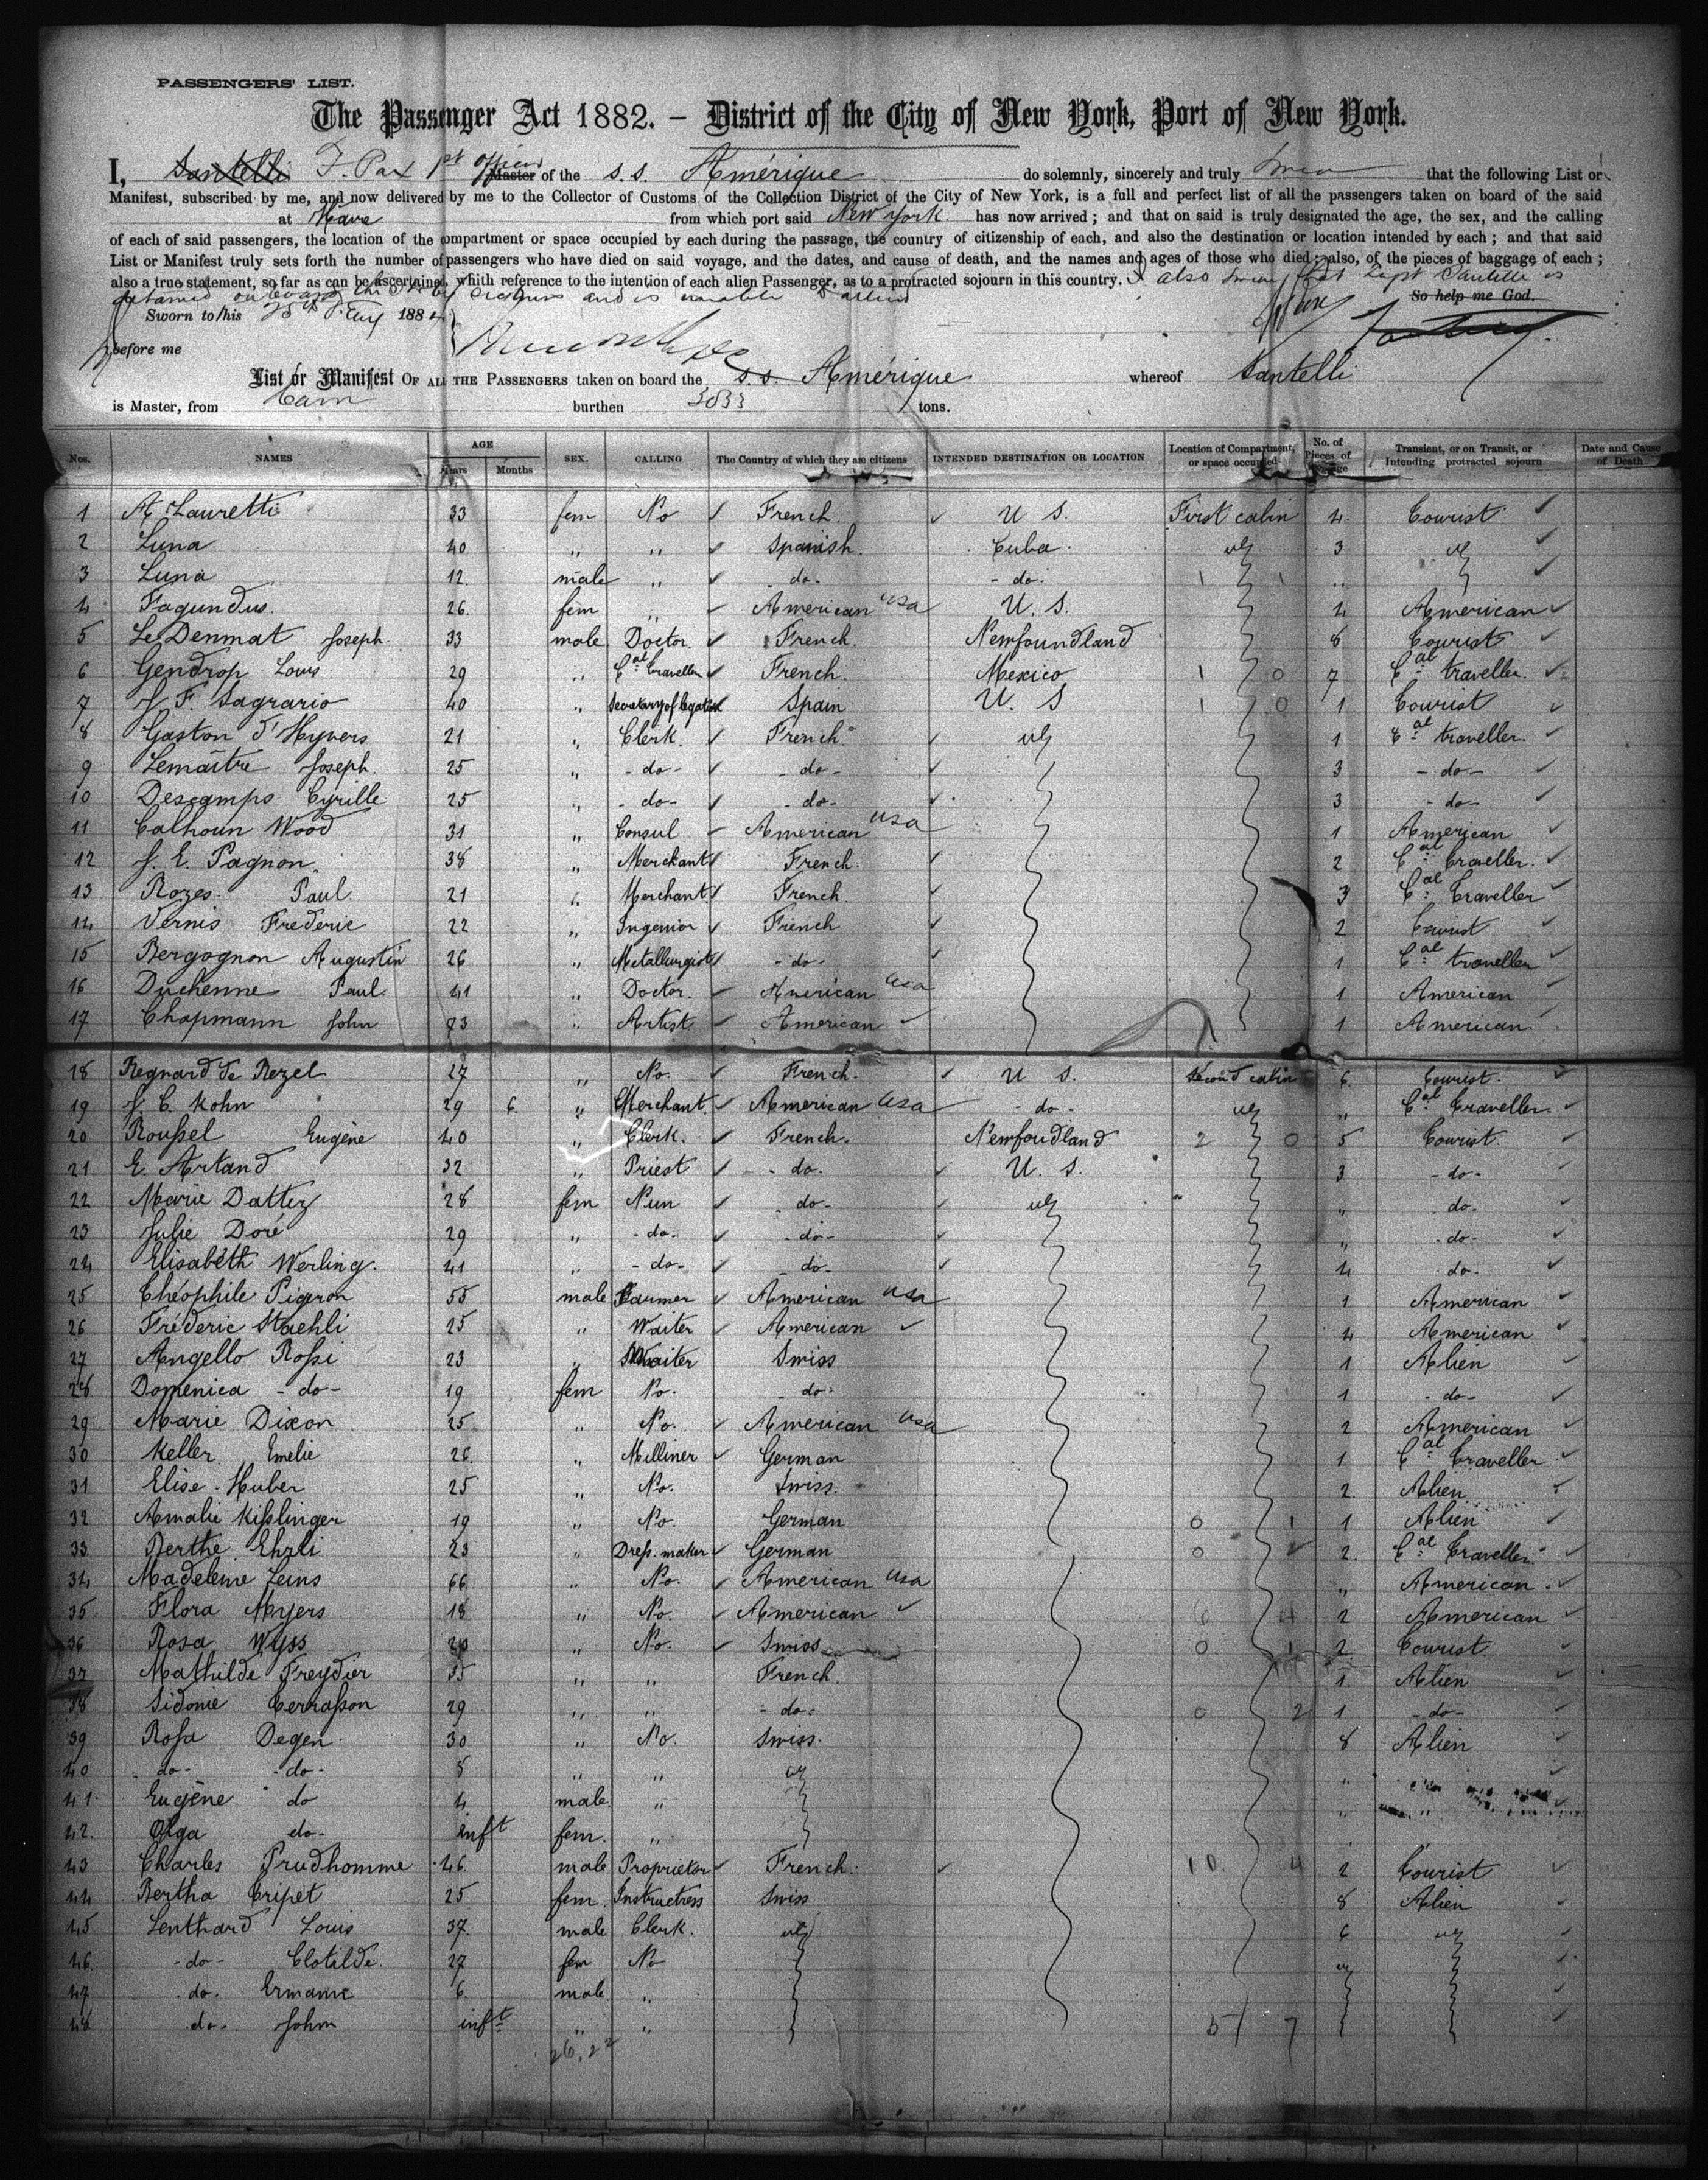 PASSENGERS' LIST.
The Passenger Act 1882. – District of the City of New York, Port of New York.
I, Santelli F. Pax 1st officer Master of the s.s. Amérique do solemnly, sincerely and truly swear that the following List or
Manifest, subscribed by me, and now delivered by me to the Collector of Customs of the Collection District of the City of New York, is a full and perfect list of all the passengers taken on board of the said
at Havre from which port said New York has now arrived; and that on said is truly designated the age, the sex, and the calling
of each of said passengers, the location of the compartment or space occupied by each during the passage, the country of citizenship of each, and also the destination or location intended by each; and that said
List or Manifest truly sets forth the number of passengers who have died on said voyage, and the dates, and cause of death, and the names and ages of those who died; also, of the pieces of baggage of each;
also a true statement, so far as can be ascertained, whith reference to the intention of each alien Passenger, as to a protracted sojourn in this country. I also swear that Capt Santelli is
detained on board the by sickness and is unable to attend
So help me God.
Sworn to/his 25th 1884
before me
List or Manifest OF ALL THE PASSENGERS taken on board the s.s. Amérique whereof Santelli
is Master, from burthen 3033 tons.
Nos. NAMES AGE Years Months SEX. CALLING The Country of which they are citizens INTENDED DESTINATION OR LOCATION Location of Compartment, or space occupied No. of Pieces of Baggage Transient, or on Transit, or Intending protracted sojourn Date and Cause of Death
1 A Lauretti 33 fem No French U S. First cabin 4 Tourist
2 Luna 40 " " Spanish. Cuba. 3
3 Luna 12. male " - do. - do. "
4 Fagundus. 26. fem " American USA U. S. 4 American
5 Le Denmat Joseph. 33 male Doctor French. Newfoundland 8 Tourist
6 Gendrop Louis 29 " Cal Traveller French. Mexico 1 0 7 Cal traveller.
7 J. F. Sagrario 40 " Secretary of legation Spain U. S 1 0 1 Tourist
8 Gaston d'Hyvers 21 " Clerk. French 1 Cal traveller.
9 Lemaître Joseph. 25 " - do - - do - 3 - do -
10 Descamps Cyrille 25 " - do - - do - 3 - do -
11 Calhoun Wood 31 " Consul American USA 1 American
12 J. E. Pagnon 38 " Merchant French. 2 Cal Traveller.
13 Rozes. Paul. 21 " Merchant French. 3 Cal Traveller
14 Vernis Frederic 22 " Ingenior French 2 Tourist
15 Bergognon Augustin 26 " Metallurgist - do - 1 Cal traveller
16 Duchenne Paul. 41 " Doctor. American USA 1 American
17 Chapmann John 23 " Artist American 1 American
18 Regnard de Rezel 27 " No. French. U S. Second cabin 6. Tourist.
19 J. C. Kohn 29 6. " Merchant. American USA - do - " Cal Traveller.
20 Roussel Eugène 40 " Clerk. French. Newfoudland 2 0 5 Tourist.
21 E. Artand 32 " Priest - do. U. S. 3 - do -
22 Marie Dattez 28 fem Nun do - " do -
23 Julie Doré 29 " - do. - - do - " - do -
24 Elisabéth Werling. 41 " - do - do - 4 do -
25 Théophile Pigeron 55 male Farmer American USA 1 American
26 Fréderic Staehli 25 " Waiter American 4 American
27 Angello Rossi 23 " Waiter Swiss 1 Alien
28 Domenica - do - 19 fem No. do - 1 - do -
29 Marie Dixon 25 " No. American USA 2 American
30 Keller Emelie 26. " Milliner German 1 Cal Traveller
31 Elise Huber 25 " No. Swiss. 2. Alien
32 Amalie Kisslinger 19 " No. German 0 1 1 Alien
33 Berthe Ehrli 23 " Dress. maker German 0 2 2. Cal Traveller
34 Madeleine Zeins 66 " No. American USA " American.
35 Flora Myers 18 " No. American 6 4 2 American
36 Rosa Wyss 20 " No. Swiss 0 1 2. Tourist.
37 Mathilde Freydier 35 " " French. 1. Alien
38 Sidonie Terrasson 29 " " - do - 0 2 1 - do -
39 Rosa Degen. 30 " No. Swiss. 8 Alien
40 do - - do - 8 " " "
41. Eugène do 4 male. " "
42. Olga do - inft fem. "
43 Charles Prudhomme 46 male Proprietor French. 10. 4 2 Tourist
44 Bertha Tripet 25 fem. Instructress Swiss 8 Alien
45 Lenthard Louis 37. male Clerk. 6
46. - do - Clotilde. 27 fem No
47 . do. Ermanie 6. male "
48 . do - John inft " "
26, 22
51 7